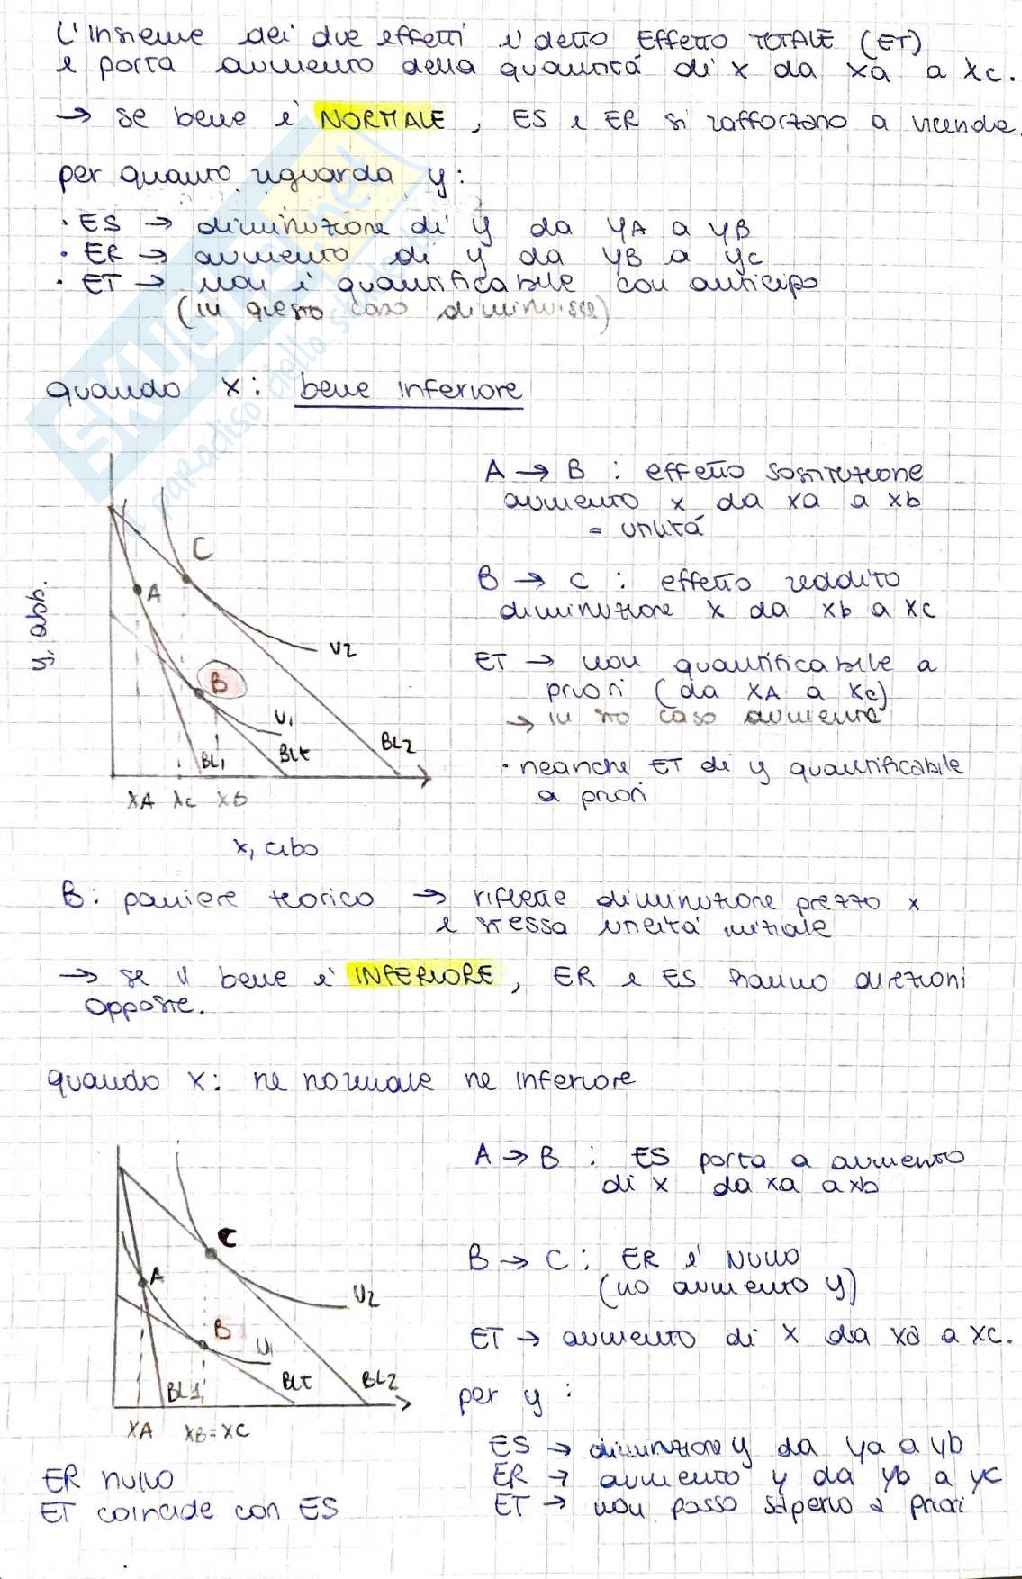 L'insieme dei due effetti è detto Effetto TOTALE (ET)
e porta aumento della quantità di x da xa a xc.
→ se bene è NORMALE, ES e ER si rafforzano a vicenda.
per quanto riguarda y:
· ES → diminuzione di y da yA a yB
· ER → aumento di y da yB a yc
· ET → non è quantificabile con anticipo
(in questo caso diminuisce)
quando x: bene inferiore
A → B : effetto sostituzione
aumento x da xa a xb
= utilità
B → C : effetto reddito
diminuzione x da xb a xc
ET → non quantificabile a
priori (da xA a xc)
→ in sto caso aumenta
· neanche ET di y quantificabile
a priori
y, abb.
C
A
B
U2
U1
BL1
BLt
BL2
xA xc xb
x, cibo
B: paniere teorico → riflette diminuzione prezzo x
e stessa utilità iniziale
→ se il bene è INFERIORE, ER e ES hanno direzioni
opposte.
quando x: ne normale ne inferiore
A → B : ES porta a aumento
di x da xa a xb
B → C : ER è nullo
(no aumento y)
ET → aumento di x da xa a xc.
per y :
ES → diminuzione y da ya a yb
ER → aumento y da yb a yc
ET → non posso saperlo a priori
C
A
B
U2
U1
BL1
BLt
BL2
xA xB=xC
ER nullo
ET coincide con ES
SKUOLA.net
paradiso dello